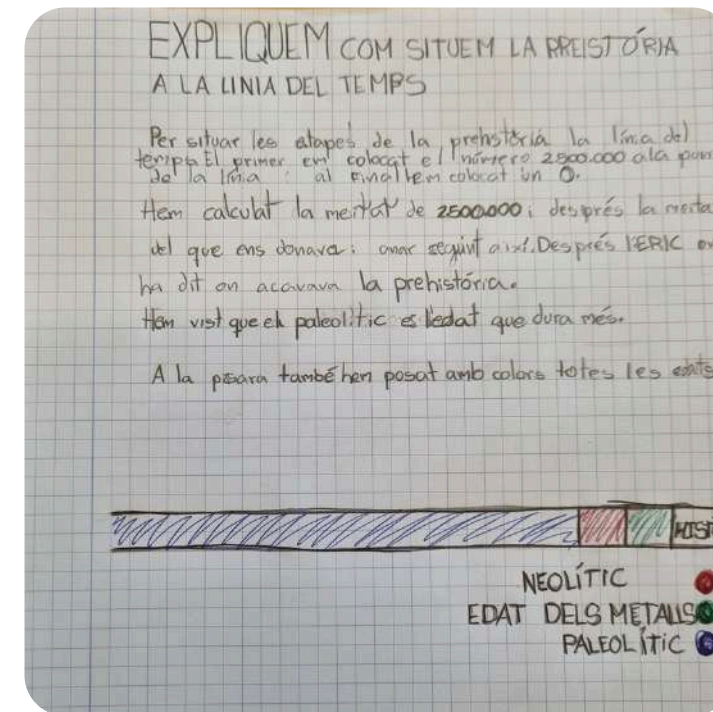 EXPLIQUEM COM SITUEM LA PREISTÓRIA
A LA LINIA DEL TEMPS
Per situar les etapes de la prehstòria la línia del
temps. El primer em colocat el número 2500.000 a la
de la línia i al final hem colocat un 0.
Hem calculat la meitat de 2500000 i després la
del que ens donava i anar seguint així. Després l'ERIC
ha dit on acavava la prehistória.
Hem vist que el paleolític es l'edat que dura més.
A la pissara també hen posat amb colors totes les edats
HIST
NEOLÍTIC
EDAT DELS METALLS
PALEOLÍTIC